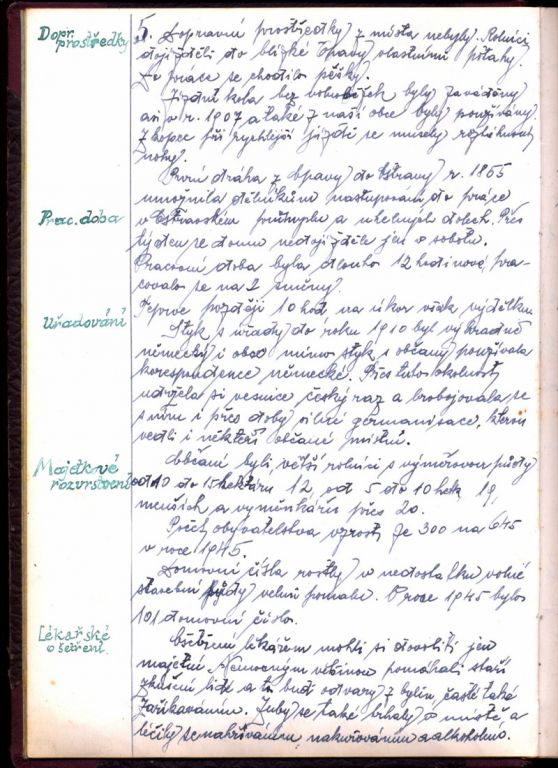 Dopr.
prostředky
5. Dopravní prostředky z místa nebyly. Rolníci
dojížděli do blízké Opavy vlastními potahy.
Do práce se chodilo pěšky.
Jízdní kola bez volnoběžek byly zaváděny
asi v r. 1907 a také z naší obce byly používány.
Z kopce při rychlejší jízdě se musely roztáhnout
nohy.
První dráha z Opavy do Ostravy r. 1855
umožnila dělníkům nastupování do práce
Prac. doba
v Ostravském průmyslu a uhelných dolech. Přes
týden se domu nedojíždělo jen v sobotu.
Pracovní doba byla dlouho 12 hodinové, pra-
covalo se na 2 směny.
Teprve později 10 hod na úkor však výdělku
Uřadování
Styk s úřady do roku 1910 byl výhradně
německý i obec mimo styk s občany používala
korespondence německé. Přes tuto okolnost
udržela si vesnice český raz a probojovala se
s ním i přes doby silné germanisace, kterou
vedli i někteří občané místní.
Majetkové
rozvrstvení
Občané byli větší rolníci s výměrou půdy
od 10 do 15 hektáru 12, od 5 do 10 hekt. 19,
menších a výměnkáru přes 20.
Počet obyvatelstva vzrostl ze 300 na 645
v roce 1945.
Domovní čísla rostly v nedostatku volné
stavební půdy velmi pomalu. V roce 1945 bylo
101 domovní číslo.
Lékařské
ošetření.
Ošetření lékařem mohli si dovoliti jen
majetní. Nemocným většinou pomáhali staří
zkušení lidé a to buď odvary z bylin, často také
zaříkáváním. Zuby se také trhaly v místě, a
léčily se nahříváním, nakuřováním a alkoholem.